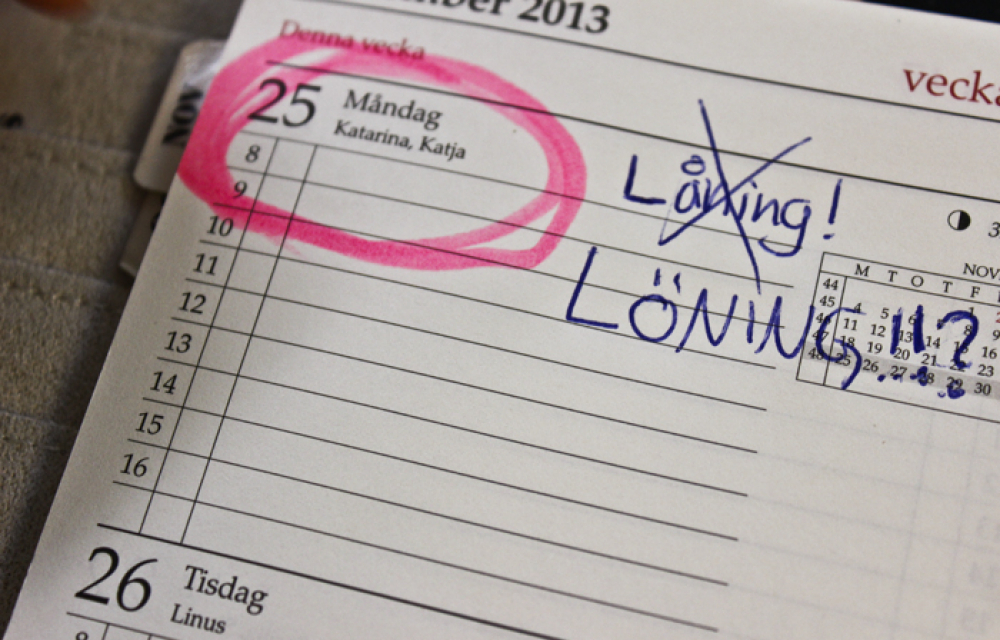 mber 2013
Denna vecka
vecka
NOV
25 Måndag
Katarina, Katja
8
9
10
11
12
13
14
15
16
Låning!
LÖNING!!?
3
NOV
M T O T F
44 1
45 4 5 6 8 9
11 12 13 14 15 16
47 18 19 20 21 22 23
48 25 26 27 28 29 30
26 Tisdag
Linus
8